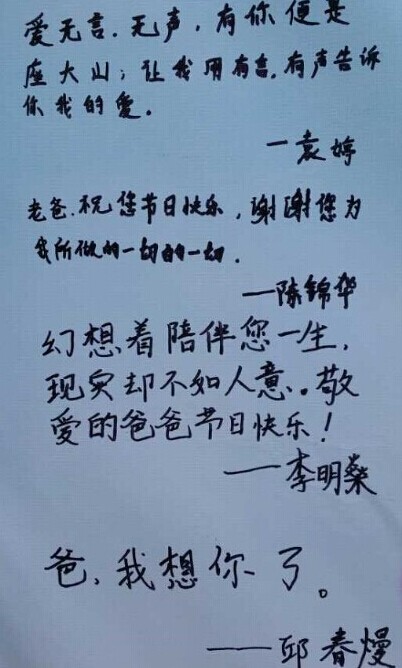 爱无言.无声,有你便是
座大山;让我用有言.有声告诉
你我的爱。
一袁婷
老爸.祝您节日快乐,谢谢您为
我所做的一切的一切.
—陈锦华
幻想着陪伴您一生,
现实却不如人意。敬
爱的爸爸节日快乐!
——李明燊
爸,我想你了。
——邱春熳